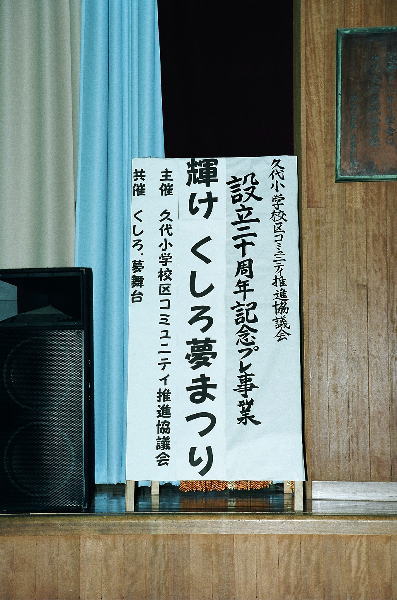 久代小学校区コミュニティ推進協議会
設立二十周年記念プレ事業
輝け くしろ夢まつり
主催 久代小学校区コミュニティ推進協議会
共催 くしろ・夢舞台